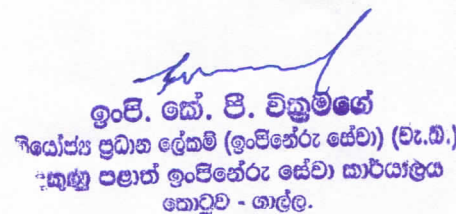 ඉංපි. කේ. පී. වික්‍රමගේ
නියෝජ්‍ය ප්‍රධාන ලේකම් (ඉංජිනේරු සේවා) (වැ.බ.)
දකුණු පළාත් ඉංජිනේරු සේවා කාර්යාලය
කොටුව - ගාල්ල.